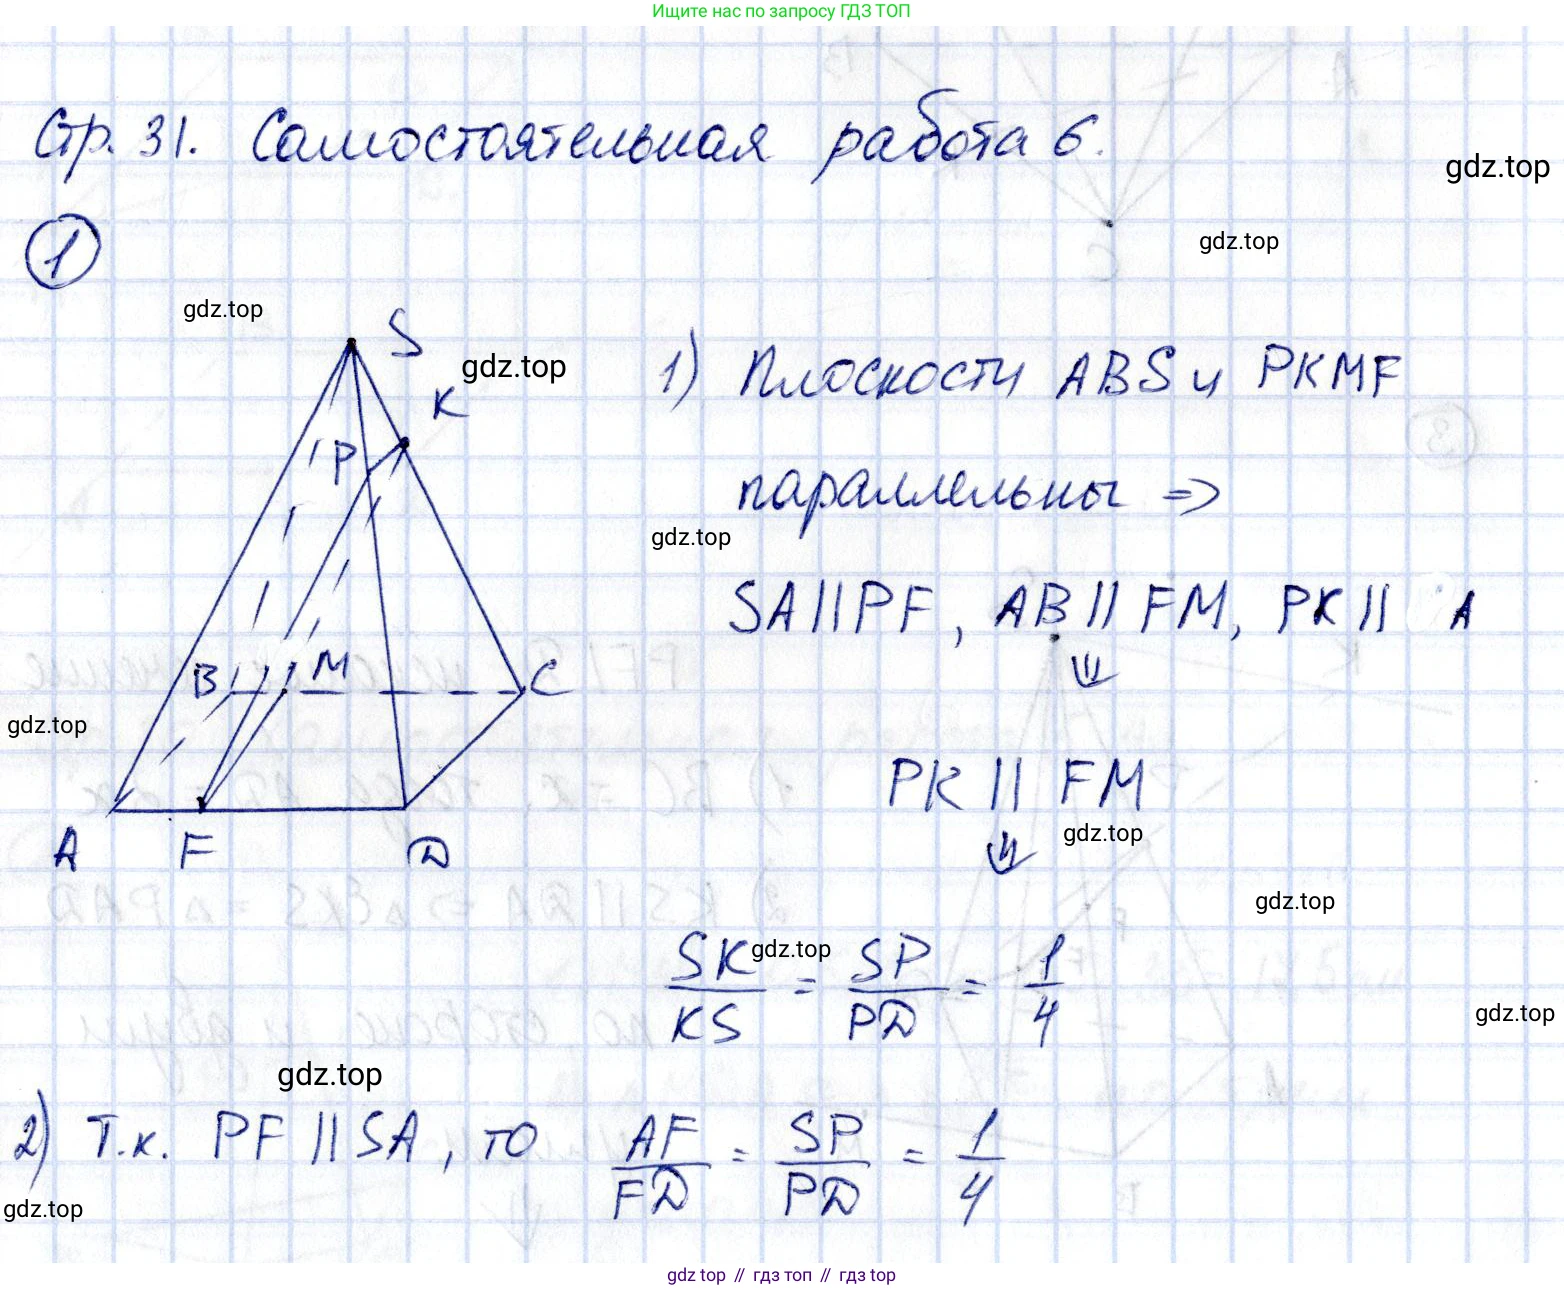 Ищите нас по запросу ГДЗ ТОП
Стр. 31. Самостоятельная работа 6.
gdz.top
1
gdz.top
gdz.top
S
gdz.top
K
P
1) Плоскости ABS и PKMF
параллельны =>
gdz.top
SA || PF, AB || FM, PK || A
⇓
B M C
gdz.top
PK || FM
gdz.top
⇓
A F D
gdz.top
SK/KS = SP/PD = 1/4
gdz.top
gdz.top
gdz.top
2) Т.к. PF || SA, то AF/FD = SP/PD = 1/4
gdz.top
gdz top // гдз топ // гдз top